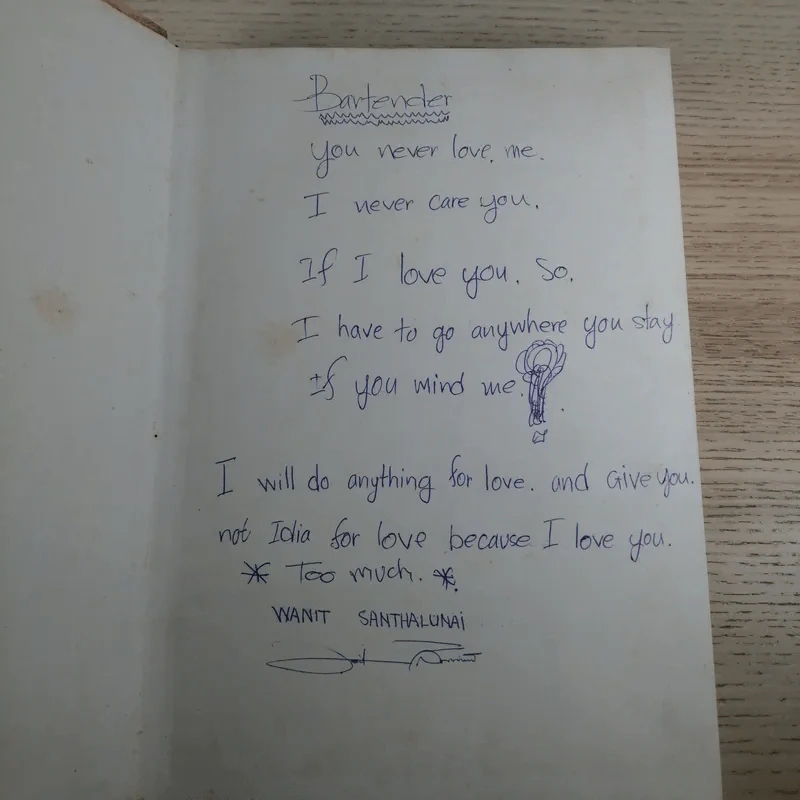 Bartender
You never love, me.
I never care you.
If I love you. So.
I have to go anywhere you stay
If you mind me.?
I will do anything for love. and Give you.
not Idia for love because I love you.
* Too much. *.
WANIT SANTHALUNAi